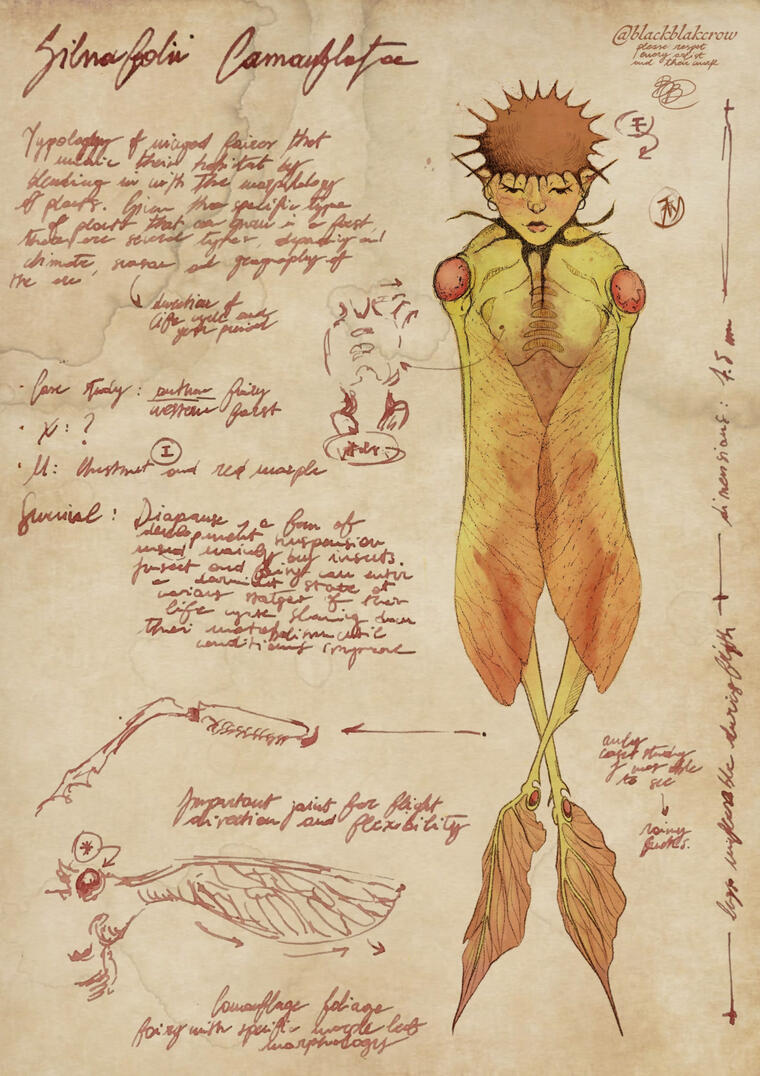 Silva folii Camouflatae
@blackblakcrow
please respect
every artist
and their work
Typology of winged fairies that
mimic their habitat by
blending in with the morphology
of plants. Given the specific type
of plant that can grow in a forest,
there are several types, depending on
climate, season and geography of
the
duration of
life cycle and
year period
Case study: autumn fairy
western forest
X: ?
I
M: Chestnut and red maple
Survival: Diapause, a form of
development suspension
used mainly by insects.
Insect and fairy can enter
a dormant state at
various stages of their
life cycle slowing down
their metabolism until
conditions improve
Important joint for flight
direction and flexibility
Camouflage foliage
fairy with specific maple leaf
morphology
only
case study
I was able
to see
rainy
dimensions: 7.5 mm
legs during flight